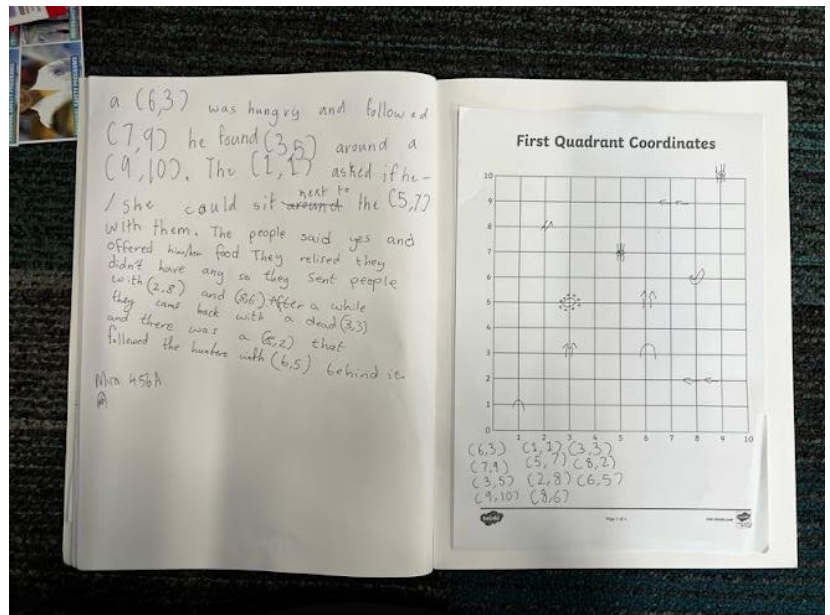 a (6,3) was hungry and followed
(7,9) he found (3,5) around a
(9,10). The (1,1) asked if he-
/she could sit around next to the (5,7)
with them. The people said yes and
offered him/her food They relised they
didn't have any so they sent people
with (2,8) and (8,6). After a while
they came back with a dead (3,3)
and there was a (8,2) that
followed the hunters with (6,5) behind it.
First Quadrant Coordinates
10
9
8
7
6
5
4
3
2
1
0
1 2 3 4 5 6 7 8 9 10
(6,3) (1,1) (3,3)
(7,9) (5,7) (8,2)
(3,5) (2,8) (6,5)
(9,10) (8,6)
twinkl
Page 1 of 1